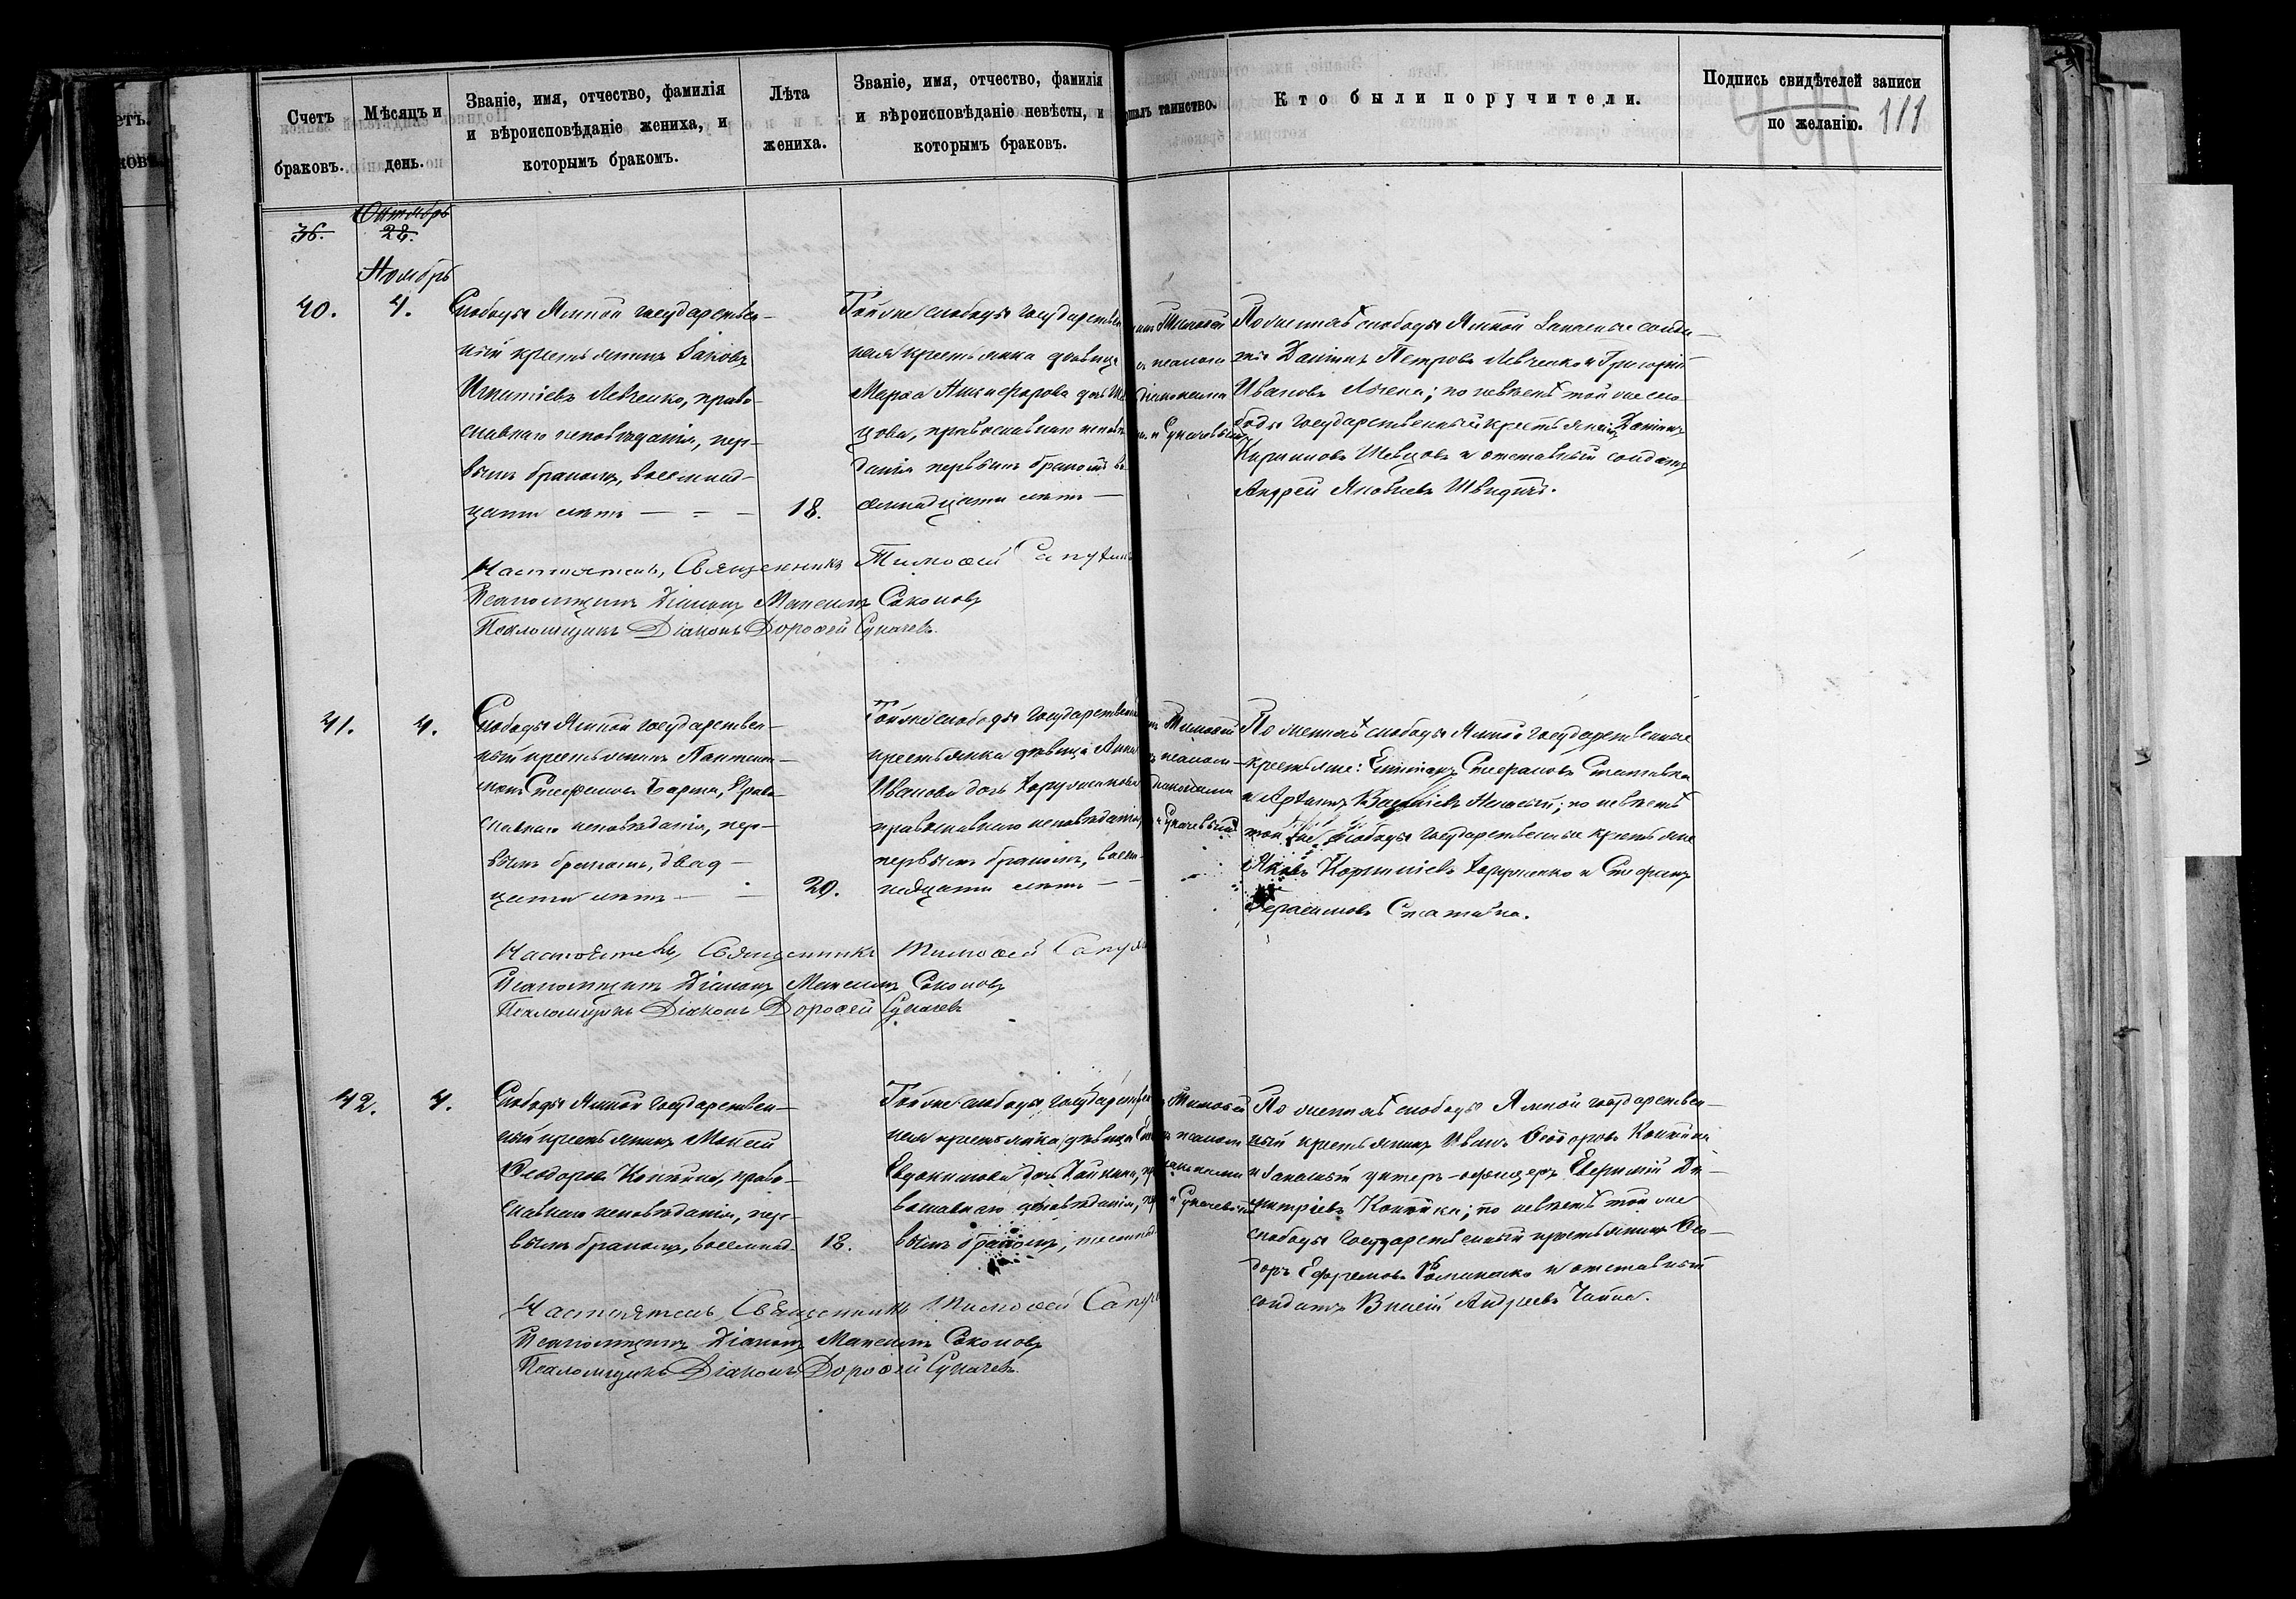 Счетъ
браковъ.
Мѣсяцъ и
день.
Званіе, имя, отчество, фамилія
и вѣроисповѣданіе жениха, и
которымъ бракомъ.
Лѣта
жениха.
Званіе, имя, отчество, фамилія
и вѣроисповѣданіе невѣсты, и
которымъ браковъ.
таинство.
Кто были поручители.
Подпись свидѣтелей записи
по желанію.
111
36.
Октябрь
28.
Ноябрь
40.
4.
Слободы Ямной государствен-
ный крестьянинъ
Левченко, право-
славнаго исповѣданія, пер-
вымъ бракомъ, восемнад-
цати лѣтъ
18.
Той же слободы государствен
ная крестьянка дѣвица
Марѳа Никифорова дочь Ше
цова, православнаго исповѣ
данія первымъ бракомъ во
семнадцати лѣтъ
Тимоѳей
псалом
діаконами
и Сукачевымъ
По женихѣ слободы Ямной запасные солда-
ты Даніилъ Петровъ Левченко и Григорій
Ивановъ; по невѣстѣ той же сло
боды государственный крестьянинъ Даніилъ
Шевцовъ и отставный солдатъ
Андрей Яковлевъ
Настоятель, Священникъ Тимоѳей
Псаломщикъ Діаконъ Максимъ Соколовъ
Псаломщикъ Діаконъ Дороѳей Сукачевъ.
41.
4.
Слободы Ямной государствен-
ный крестьянинъ Пантелей-
монъ Стефановъ, Право
славнаго исповѣданія, пер-
вымъ бракомъ, двад-
цати лѣтъ
20.
Той же слободы государственная
крестьянка дѣвица Анна
Иванова дочь
православнаго исповѣданія
первымъ бракомъ, восем-
надцати лѣтъ
Тимоѳей
псалом-
діаконами
Сукачевымъ
По женихѣ слободы Ямной государственные
крестьяне: Стефановъ
и; по невѣстѣ
той же слободы государственные крестьяне
Яковъ и Стефанъ
Герасимовъ
Настоятель, Священникъ Тимоѳей
Псаломщикъ Діаконъ Максимъ Соколовъ
Псаломщикъ Діаконъ Дороѳей Сукачевъ
42.
4.
Слободы Ямной государствен-
ный крестьянинъ Моѵсей
Ѳеодоровъ, право-
славнаго исповѣданія, пер-
вымъ бракомъ, восемнад-
18.
Той же слободы государствен
ная крестьянка дѣвица
Евдокимова дочь, пра
вославнаго исповѣданія, пер
вымъ бракомъ,
Тимоѳей
псалом
и Сукачевымъ
По женихѣ слободы Ямной государствен-
ный крестьянинъ Иванъ Ѳеодоровъ
и запасный унтеръ-офицеръ Евфимій Ди-
митріевъ; по невѣстѣ той же
слободы государственный крестьянинъ Ѳео-
доръ Ефремовъ и отставный
солдатъ Андреевъ
Настоятель, Священникъ Тимоѳей
Псаломщикъ Діаконъ Максимъ Соколовъ
Псаломщикъ Діаконъ Дороѳей Сукачевъ.